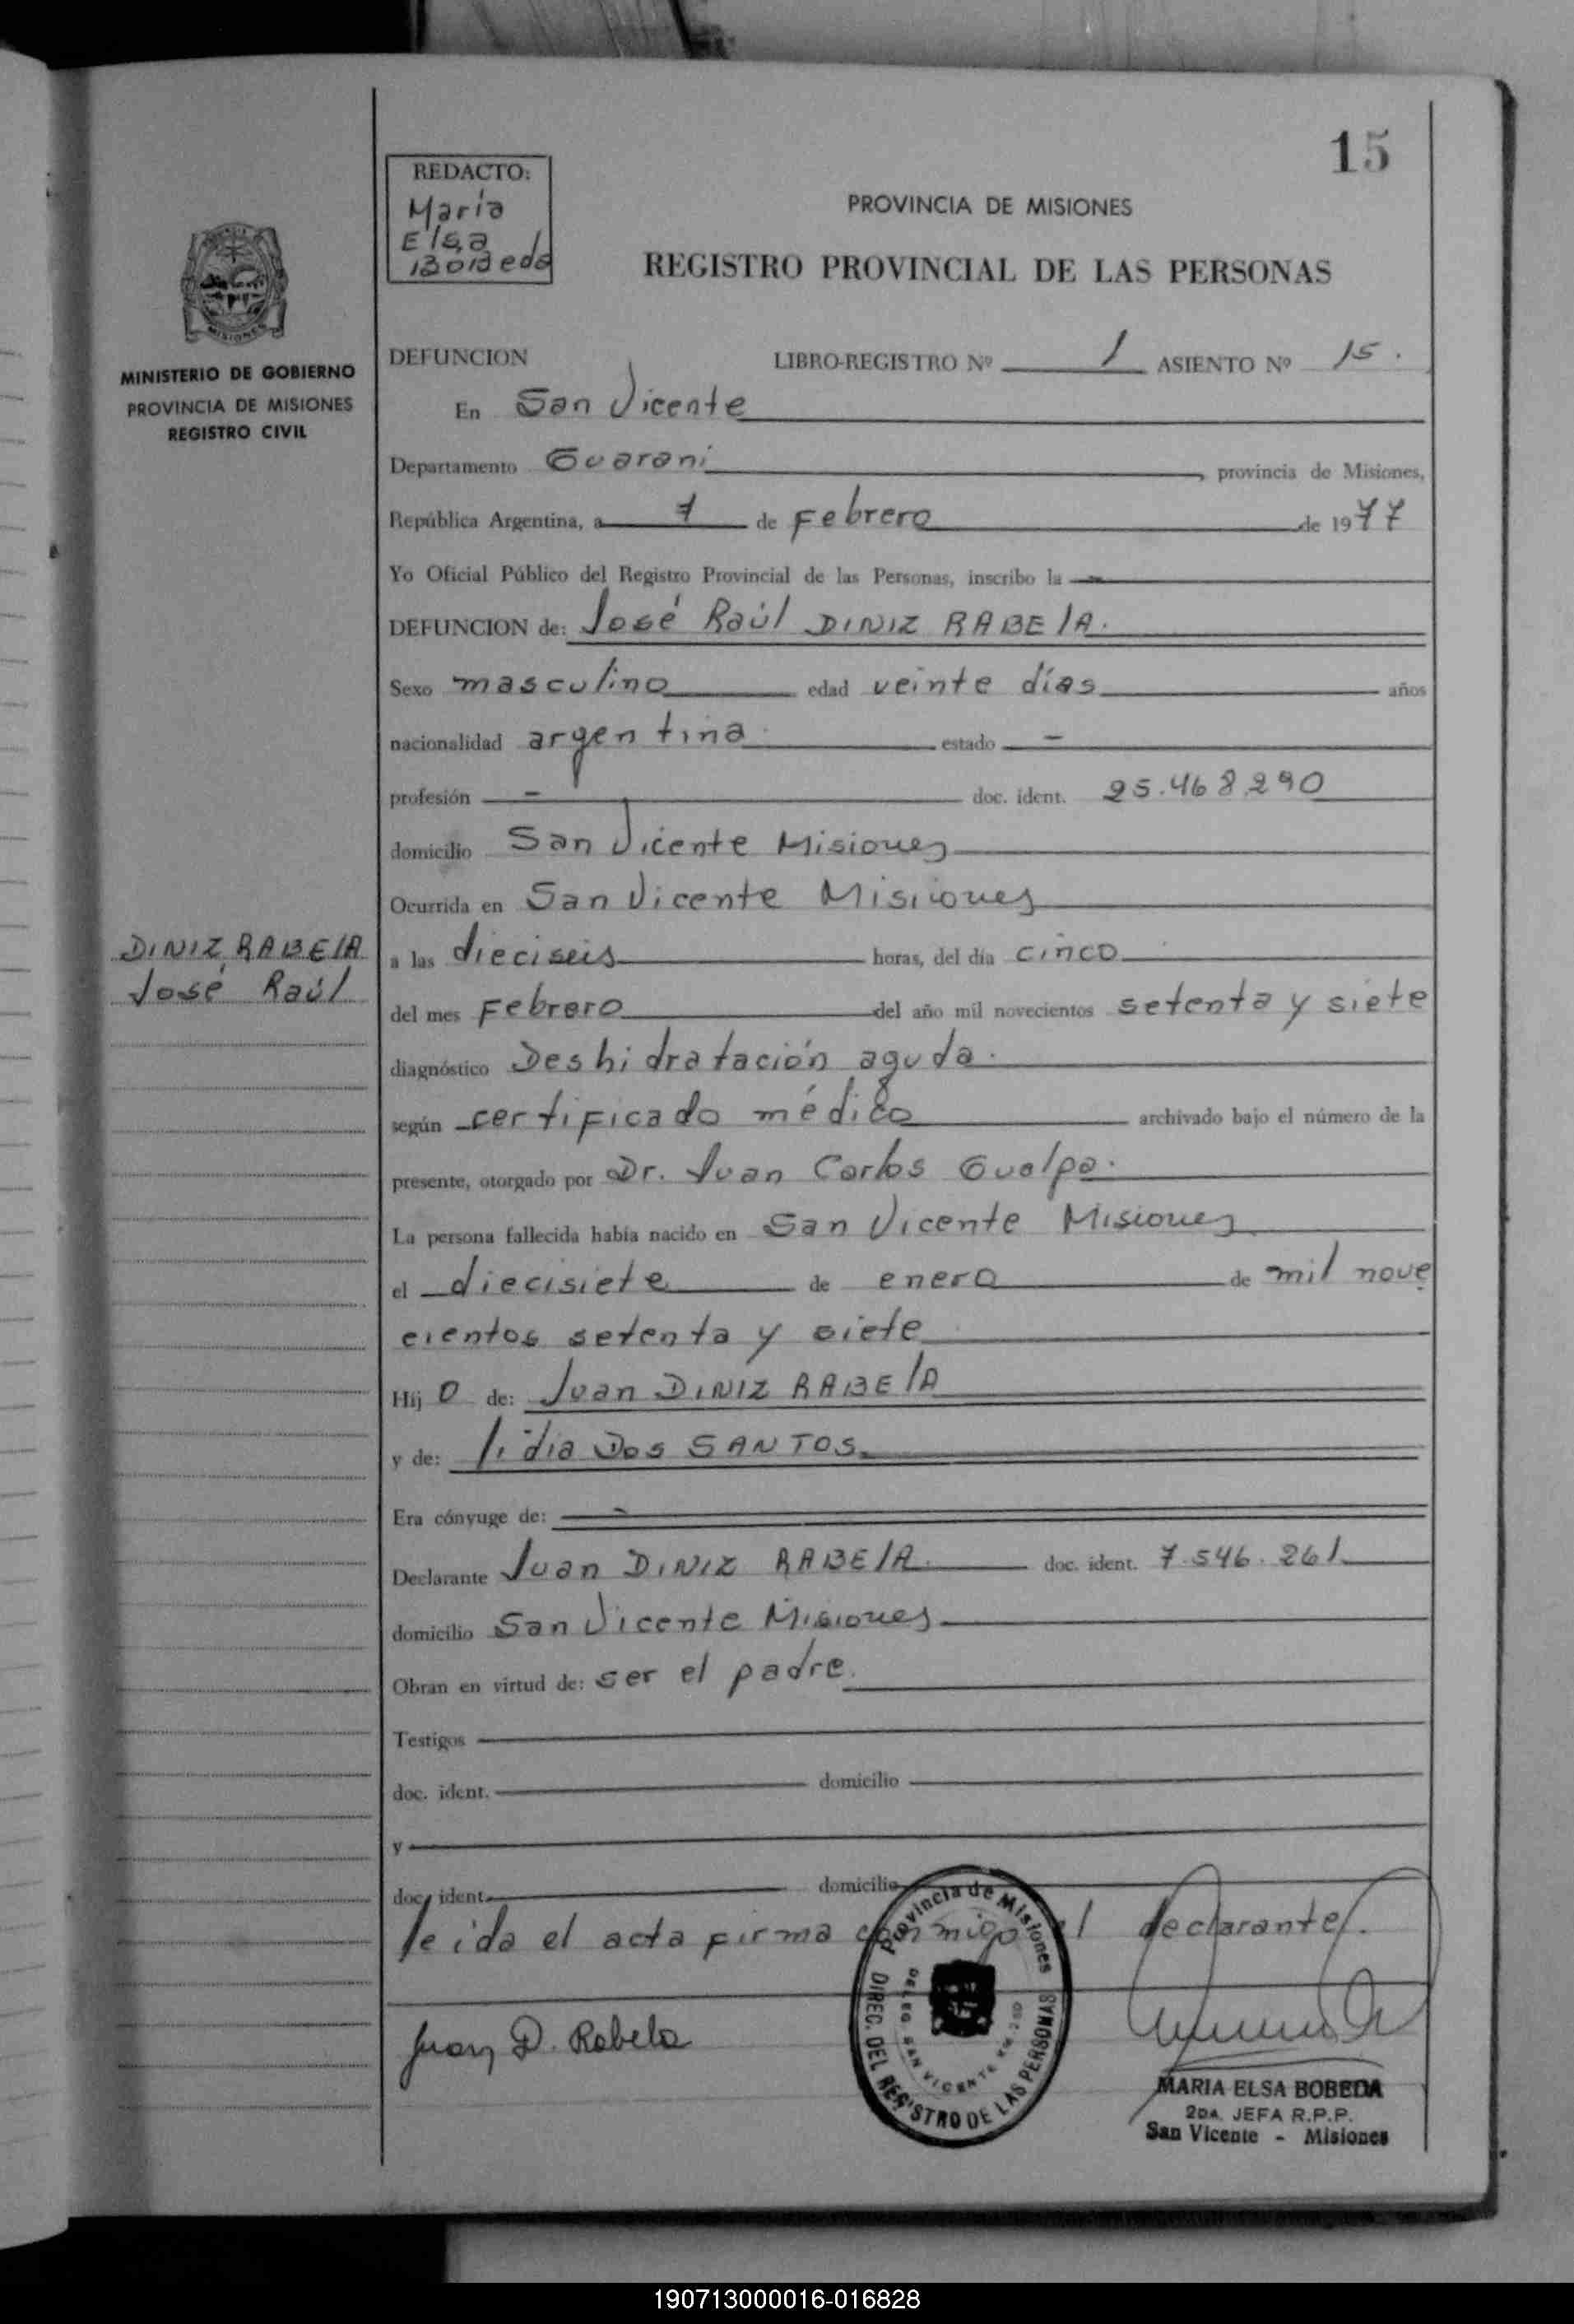 15
REDACTO:
María
Elsa
Bobeda
PROVINCIA DE MISIONES
REGISTRO PROVINCIAL DE LAS PERSONAS
MISIONES
MINISTERIO DE GOBIERNO
PROVINCIA DE MISIONES
REGISTRO CIVIL
DEFUNCION LIBRO-REGISTRO Nº 1 ASIENTO Nº 15.
En San Vicente
Departamento Guaraní, provincia de Misiones,
República Argentina, a 7 de Febrero de 1977
Yo Oficial Público del Registro Provincial de las Personas, inscribo la
DEFUNCION de: José Raúl DINIZ RABELA.
Sexo masculino edad veinte días años
nacionalidad argentina estado -
profesión - doc. ident. 25.468.290
domicilio San Vicente Misiones
Ocurrida en San Vicente Misiones
DINIZ RABELA
José Raúl
a las dieciseis horas, del día cinco
del mes Febrero del año mil novecientos setenta y siete
diagnóstico Deshidratación aguda.
según certificado médico archivado bajo el número de la
presente, otorgado por Dr. Juan Carlos Gualpa.
La persona fallecida había nacido en San Vicente Misiones
el diecisiete de enero de mil nove
cientos setenta y siete
Hij o de: Juan DINIZ RABELA
y de: lidia Dos SANTOS
Era cónyuge de: -
Declarante Juan DINIZ RABELA. doc. ident. 7.546.261
domicilio San Vicente Misiones
Obran en virtud de: ser el padre.
Testigos
doc. ident. domicilio
y
doc. ident. domicilio
leida el acta firma conmigo el declarante.
Juan D. Rabela
Provincia de Misiones
DIREC. DEL REGISTRO DE LAS PERSONAS
DELEG. SAN VICENTE
MARIA ELSA BOBEDA
2DA. JEFA R.P.P.
San Vicente - Misiones
190713000016-016828